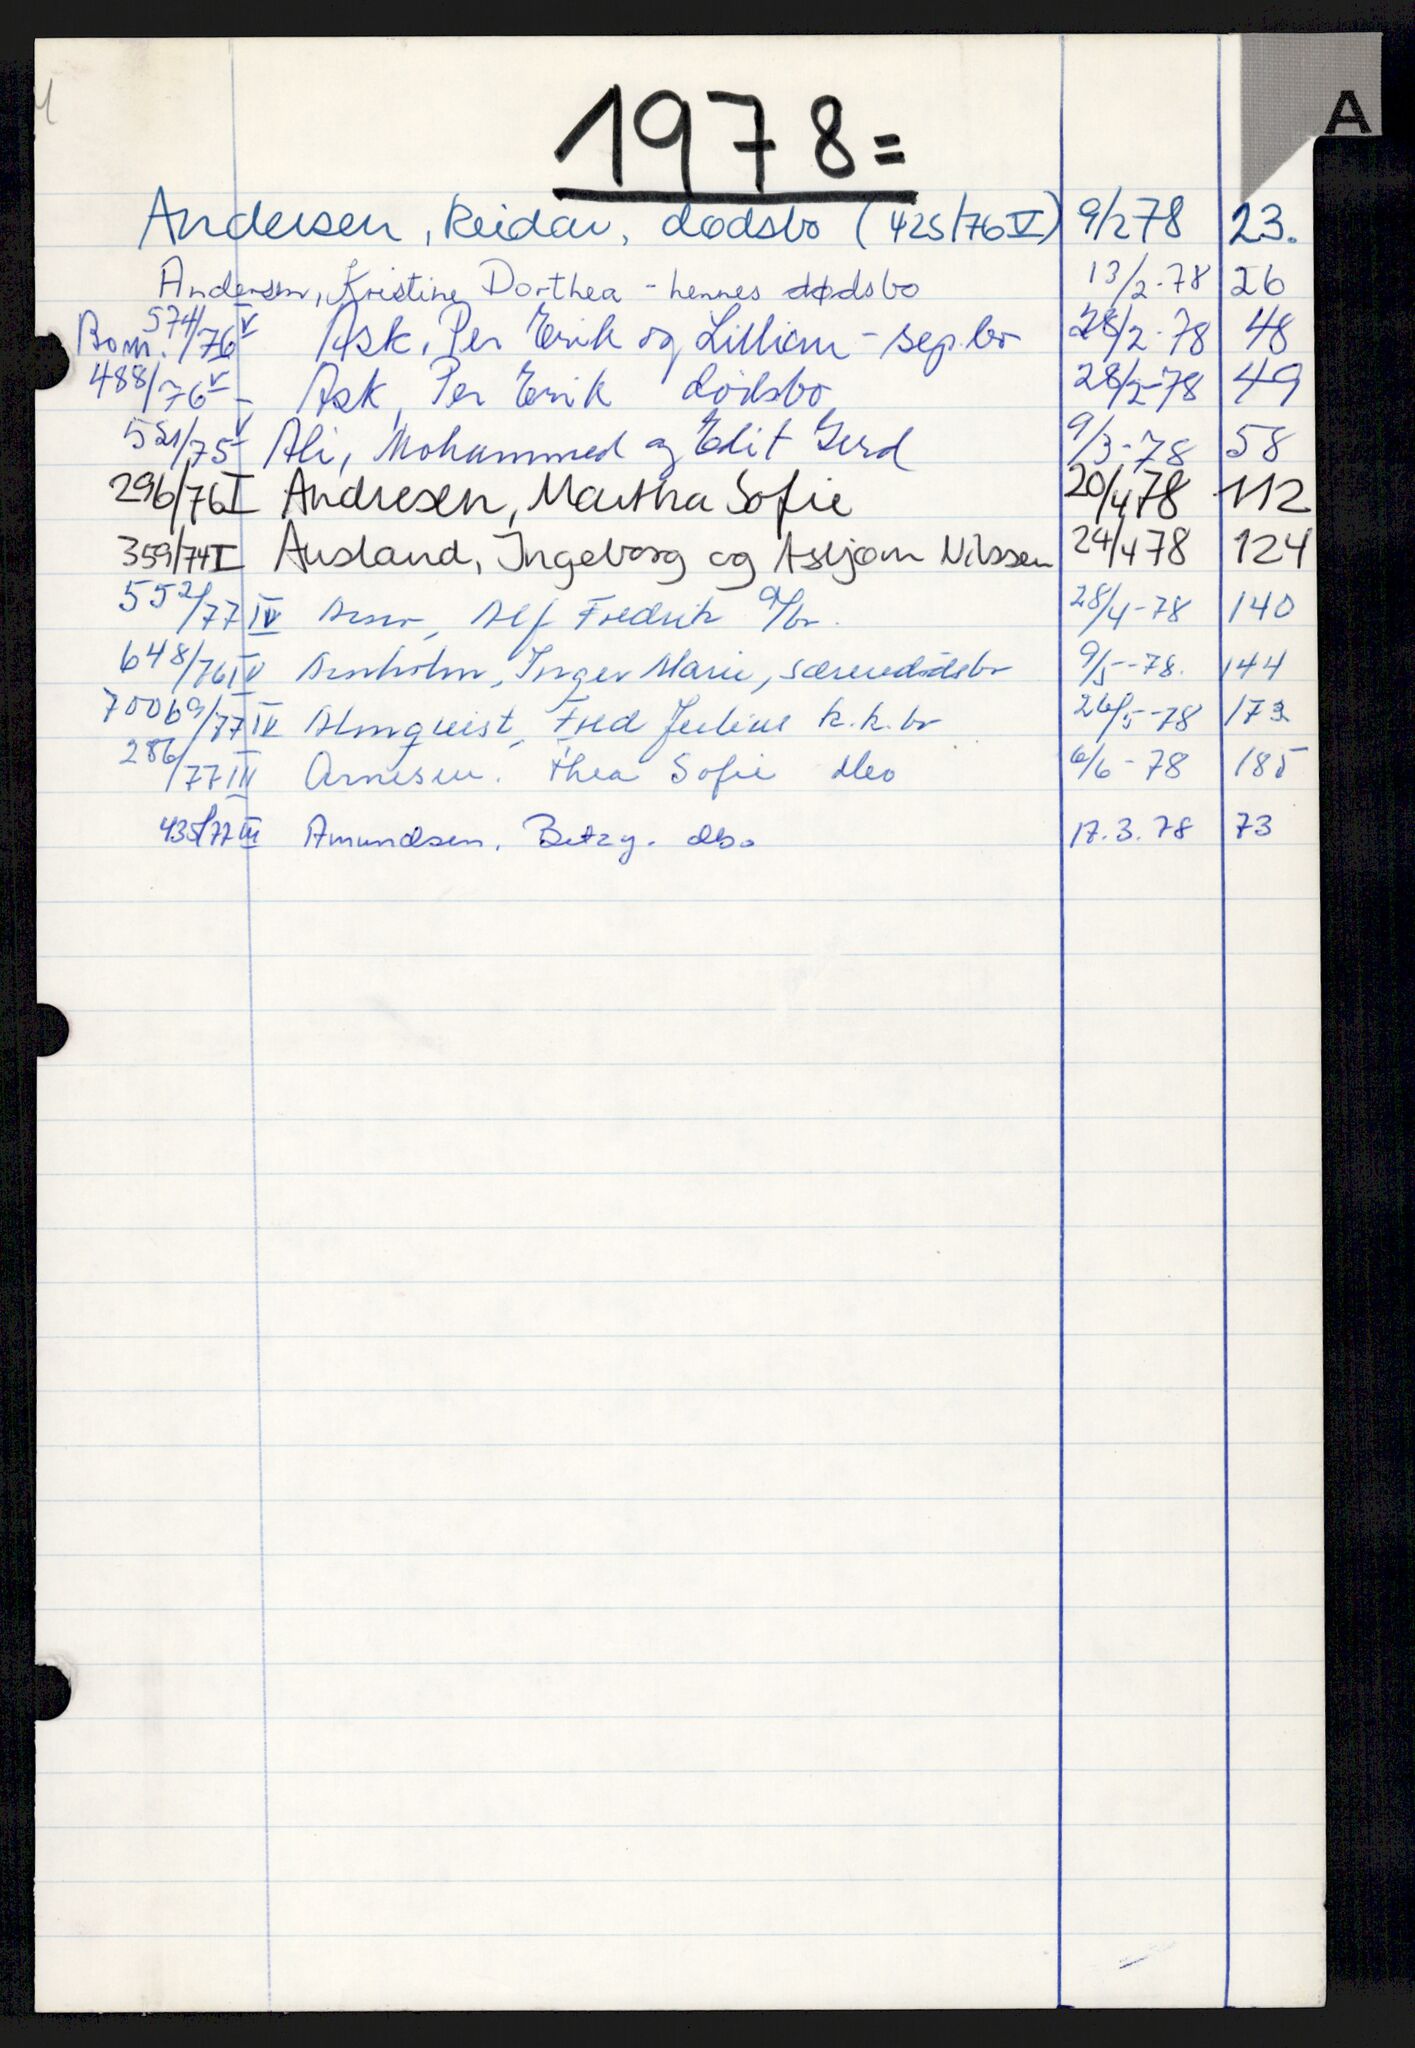 A
1978=
Andersen, Reidar, dødsbo (425/76 V) 9/2 78 23.
Andersen, Kristine Dorthea - hennes dødsbo 13/2-78 26
Bom. 574/76 V Ask, Per Erik og Lillian - sep.bo 28/2-78 48
488/76 V - Ask, Per Erik dødsbo 28/2-78 49
521/75 V Ali, Mohammed og Edit Gerd 9/3-78 58
296/76 I Andresen, Martha Sofie 20/4 78 112
359/74 I Ausland, Ingeborg og Asbjørn Nilssen 24/4 78 124
552/77 IV Alf Fredrik 28/4-78 140
648/76 IV Arnholm, Inger Marie, særeiedødsbo 9/5-78. 144
69/77 IV Almquist, Fred Julius k.k.bo 26/5-78 173
286/77 III Arnesen. Thea Sofie dbo 6/6-78 185
435/77 III Amundsen, Betzy. dbo 17.3.78 73